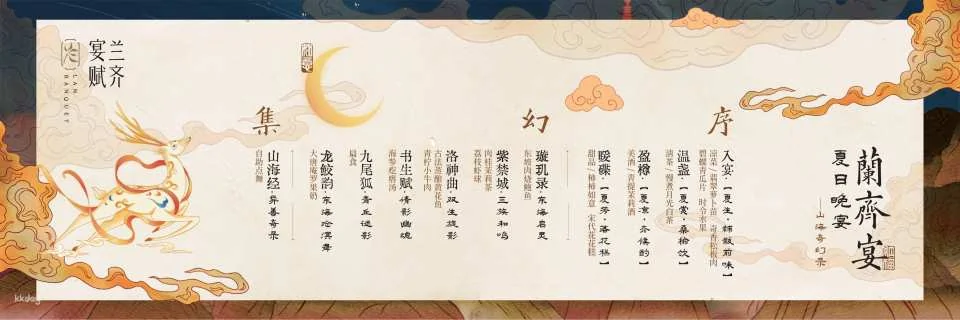 蘭齊宴
夏日晚宴
——山海奇幻录
序
入宴·【夏生·
凉菜/翡翠萝卜苗、奇香松板肉
碧蝶青瓜片、时令水果
温盏·【夏赏·桑榆饮】
清茶/慢煮月光白茶
盈樽·【夏凉·
美酒/青提茉莉酒
暖碟·【夏芳·落花糕】
甜品/柿柿如意、宋代花花糕
幻
璇玑录·东海启灵
东坡肉烧鲍鱼
紫禁城·三族和鸣
肉桂茉莉茶
荔枝虾球
洛神曲·双生旋影
古法蒸酿黄花鱼
青柠小牛肉
书生赋·倩影幽魂
海参疙瘩汤
九尾狐·青丘谜影
扁食
龙鲛韵·东海沧溟舞
大唐庵罗果奶
集
山海经·异善奇录
自助点舞
兰齐
宴赋
LAN
BANQUET
kkday